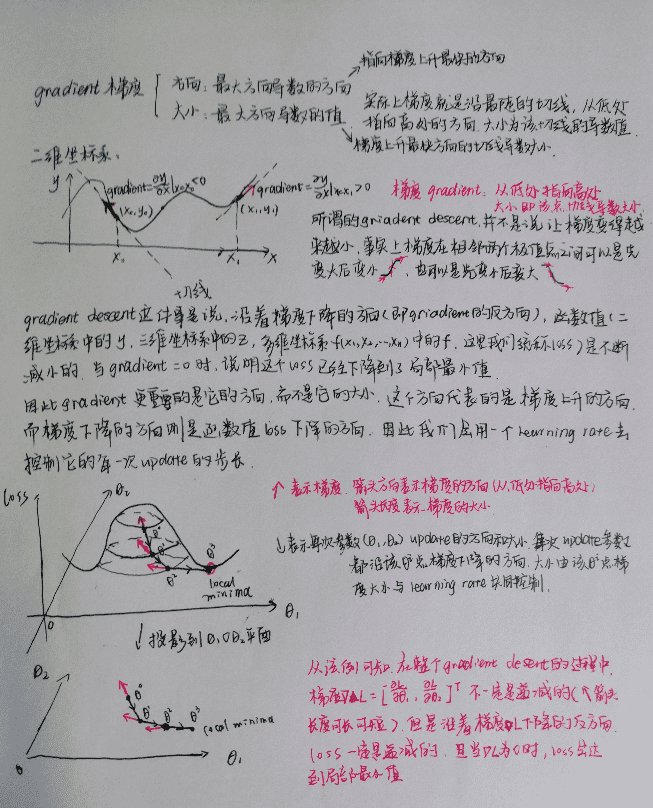 指向梯度上升最快的方向
gradient 梯度 方向：最大方向导数的方向
大小：最大方向导数的值
实际上梯度就是沿最陡的切线，从低处
指向高处的方向，大小为该切线的导数值
梯度上升最快方向的切线导数大小
二维坐标系：
y
gradient=∂y/∂x|x=x₀<0
gradient=∂y/∂x|x=x₁>0
(x₀,y₀)
(x₁,y₁)
x₀
x₁
x
切线
梯度 gradient：从低处指向高处
大小即该点切线导数大小
所谓的griadent descent，并不是说让梯度变得越
来越小，事实上梯度在相邻两个极值点之间可以是先
变大后变小，也可以是先变小后变大
gradient descent这件事是说，沿着梯度下降的方向（即griadient的反方向），函数值（二
维坐标中的y，三维坐标系中的z，多维坐标系f(x₁,x₂,…,xₙ)中的f，这里我们统称loss）是不断
减小的，当gradient=0时，说明这个loss已经下降到了局部最小值
因此gradient更重要的是它的方向，而不是它的大小，这个方向代表的是梯度上升的方向，
而梯度下降的方向则是函数值loss下降的方向，因此我们会用一个learning rate去
控制它的每一次update的步长．
loss
θ₂
θ⁰
θ¹
θ²
θ³
local
minima
θ₁
0
↑表示梯度，箭头方向表示梯度的方向（从低处指向高处）
箭头长度表示梯度的大小
↓表示每次参数(θ₁,θ₂) update的方向和大小，每次update参数
都沿该点梯度下降的方向，大小由该点梯
度大小与learning rate共同控制．
↓投影到θ₁Oθ₂平面
θ₂
θ⁰
θ¹
θ²
θ³
local minima
θ₁
0
从该例可知，在整个gradient desent的过程中，
梯度∇L=[∂L/∂θ₁, ∂L/∂θ₂]ᵀ不一定是递减的（↑箭头
长度可长可短），但是沿着梯度∇L下降的方向，
loss一定是递减的，且当∇L为0时，loss会达
到局部最小值